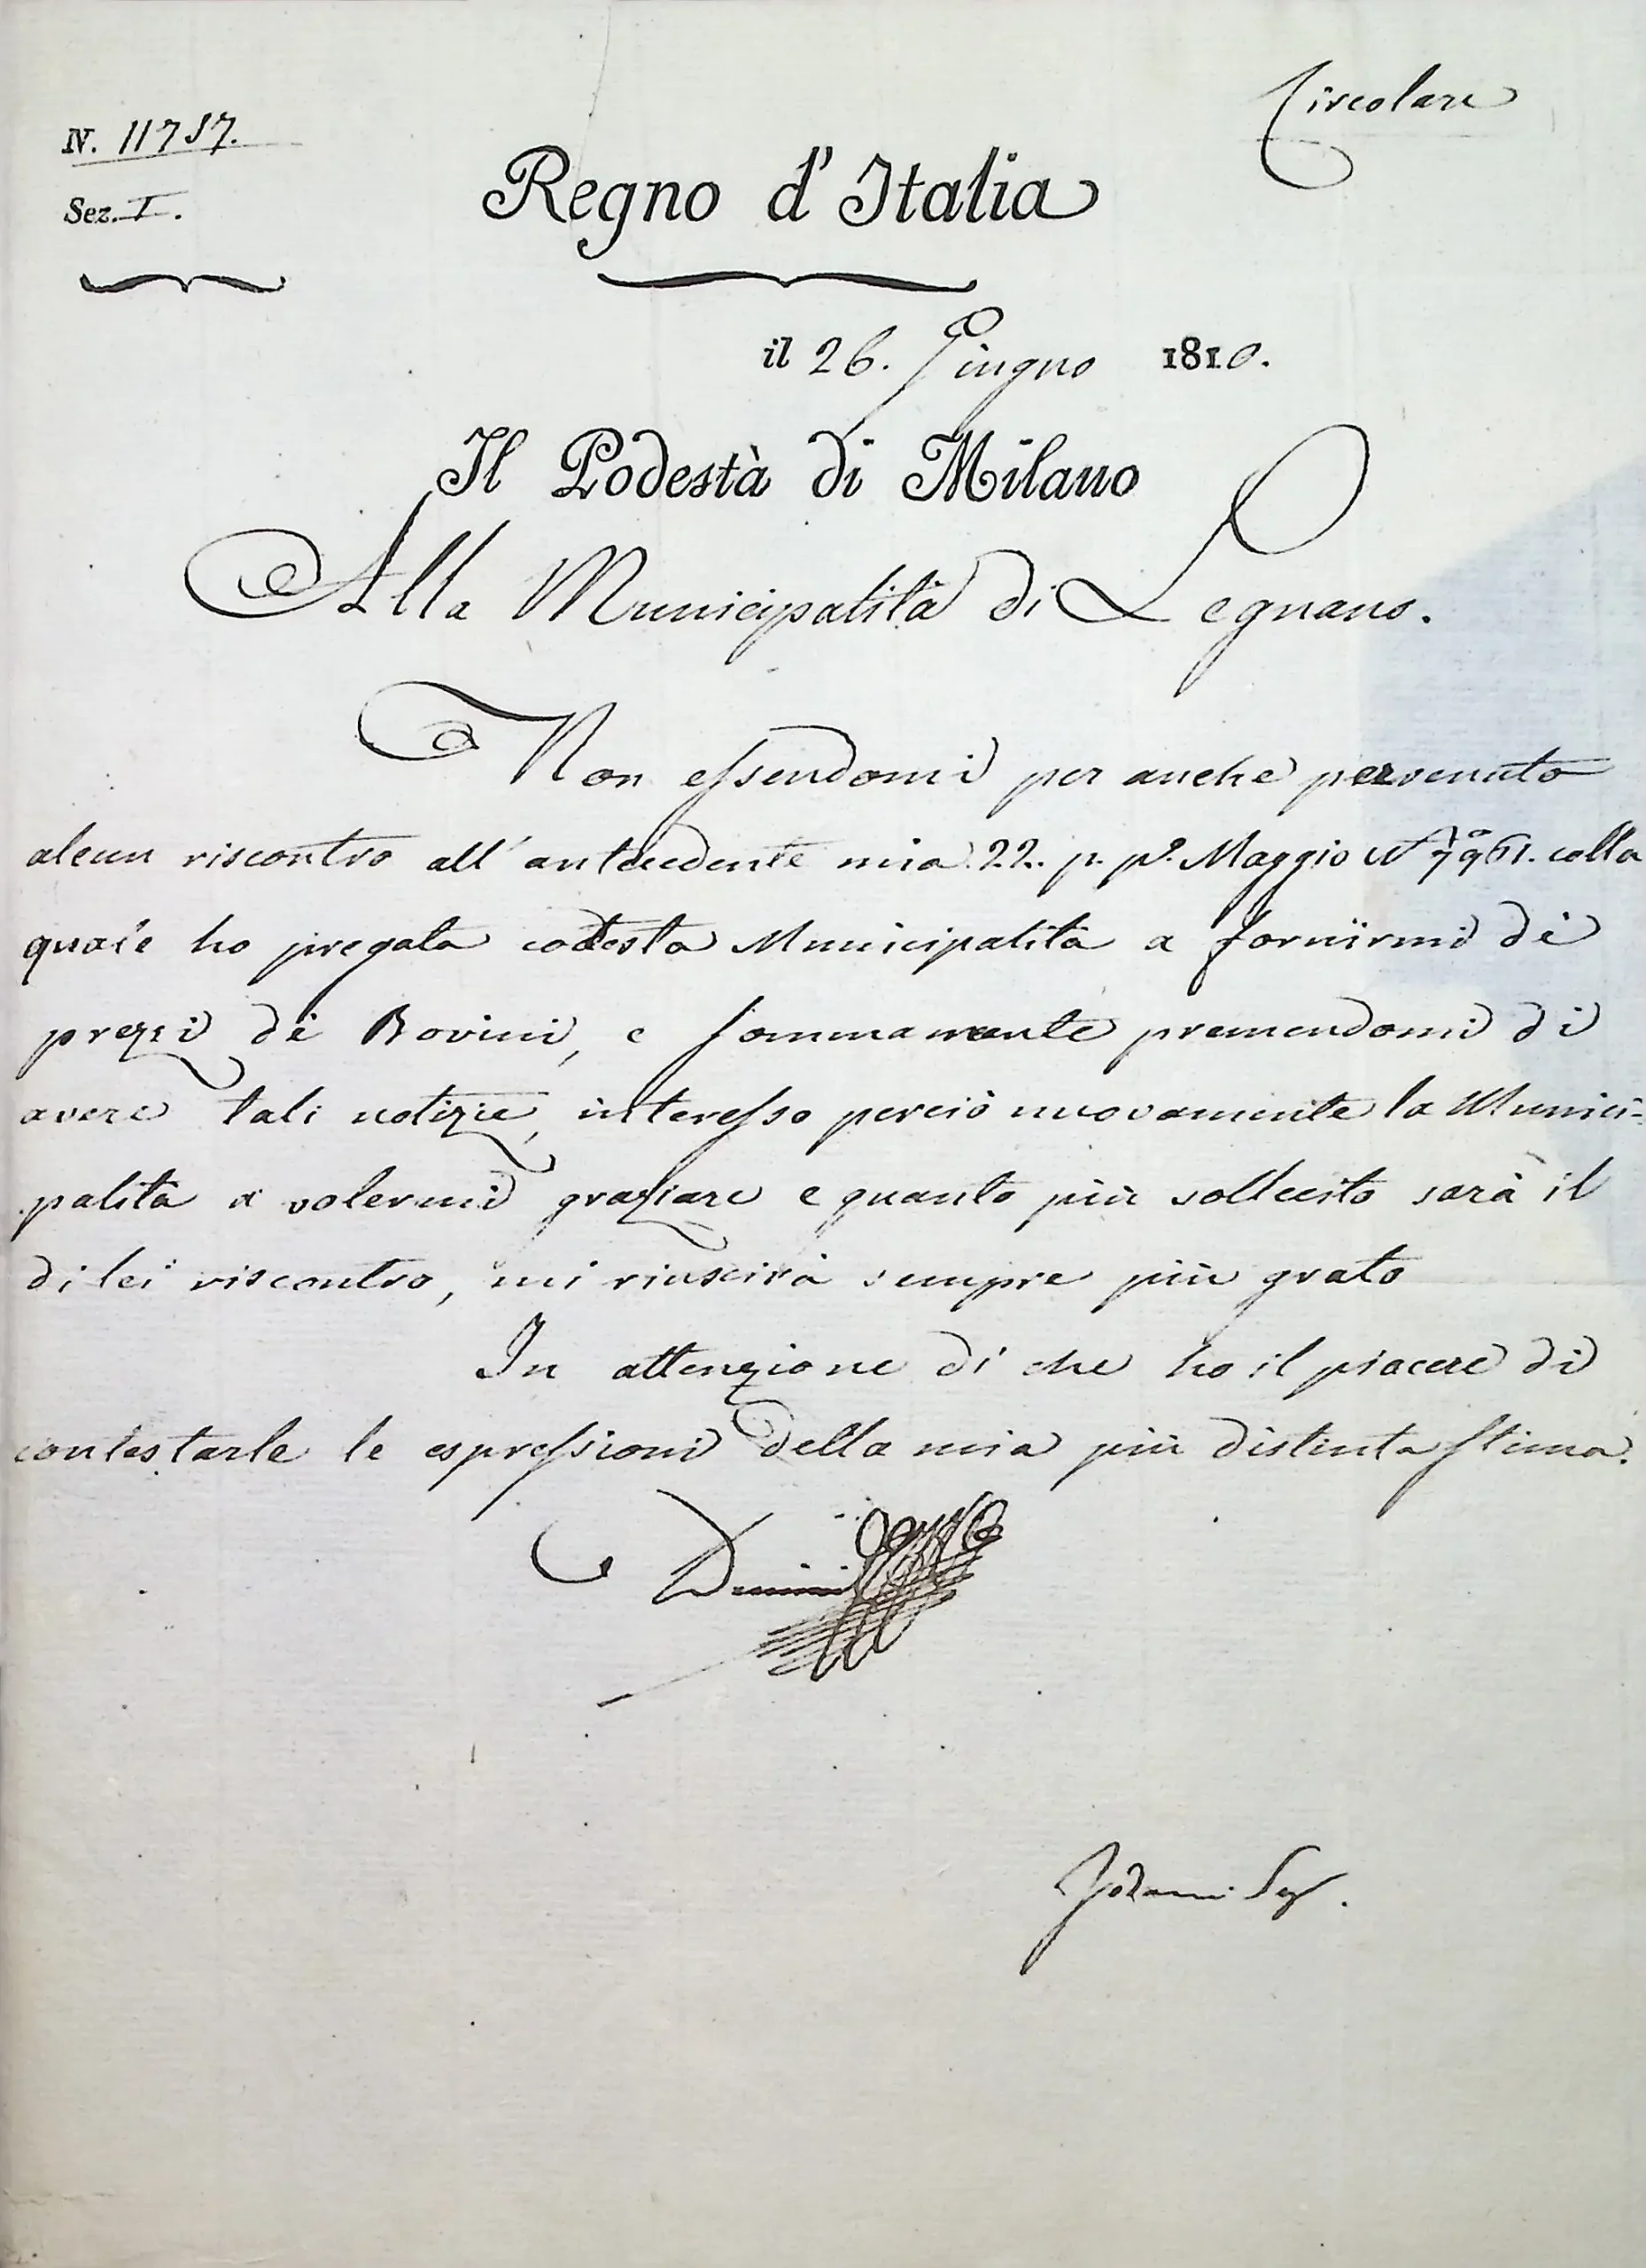 Circolare
N. 11757.
Sez. I.
Regno d'Italia
il 26. Giugno 1810.
Il Podestà di Milano
Alla Municipalità di Legnano.
Non essendomi per anche pervenuto
alcun riscontro all'antecedente mia 22. p. p.º Maggio Nº 7961. colla
quale ho pregata codesta Municipalità a fornirmi dè
prezzi dè Bovini, e sommamente premendomi di
avere tali notizie, interesso perciò nuovamente la Munici=
palità a volermi graziare e quanto più sollecito sarà il
di lei riscontro, mi riuscirà sempre più grato
In attenzione di che ho il piacere di
contestarle le espressioni della mia più distinta stima.